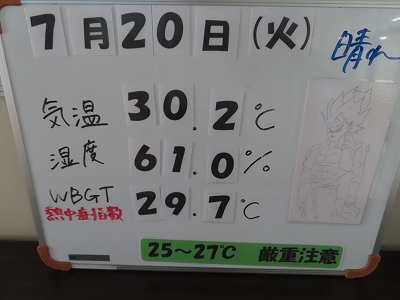 7月20日(火) 晴れ
気温 30.2℃
湿度 61.0%
WBGT 29.7℃
熱中症指数
25～27℃ 厳重注意